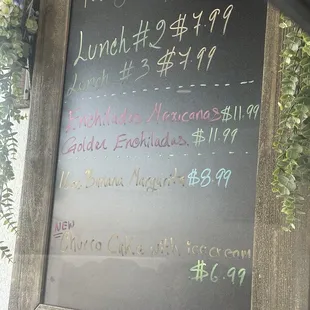 Lunch #2 $7.99
Lunch #3 $7.99
Enchiladas Mexicanas $11.99
Golden Enchiladas $11.99
Banana Margarita $8.99
NEW
Churro with icecream
$6.99